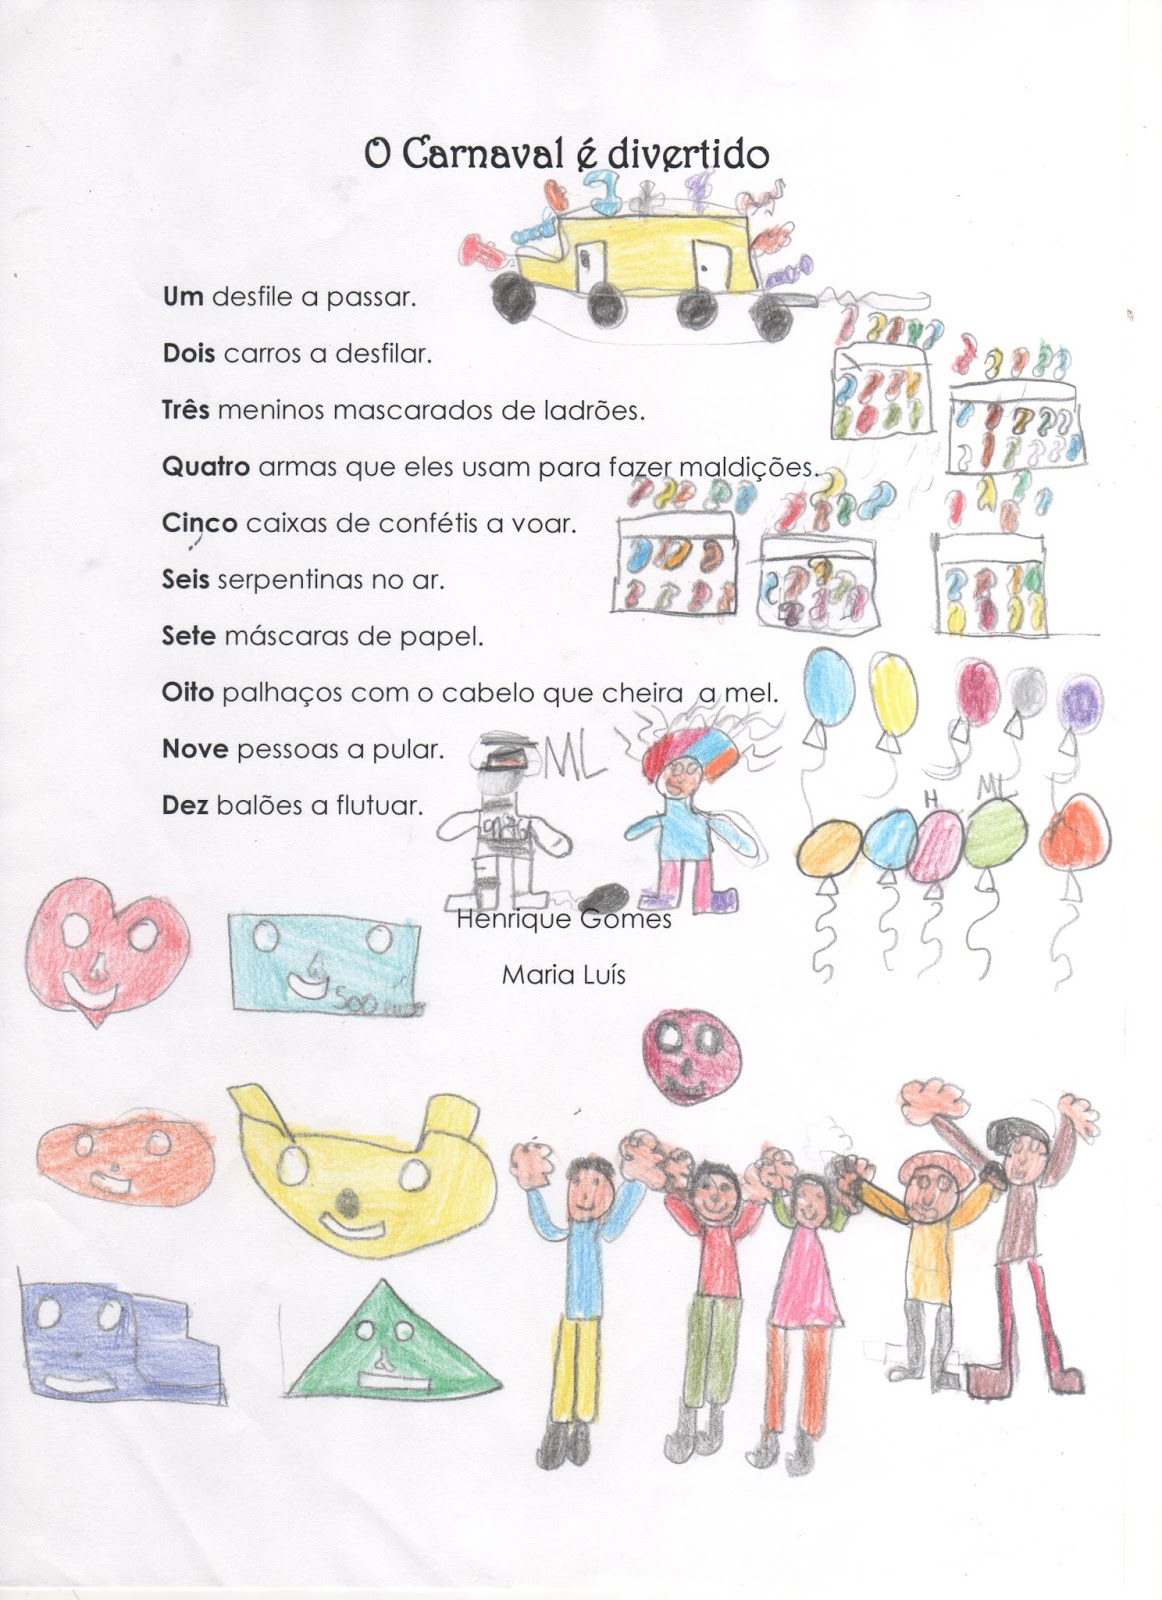 O Carnaval é divertido
Um desfile a passar.
Dois carros a desfilar.
Três meninos mascarados de ladrões.
Quatro armas que eles usam para fazer maldições.
Cinco caixas de confétis a voar.
Seis serpentinas no ar.
Sete máscaras de papel.
Oito palhaços com o cabelo que cheira a mel.
Nove pessoas a pular.
ML
Dez balões a flutuar.
H ML
Henrique Gomes
Maria Luís
500